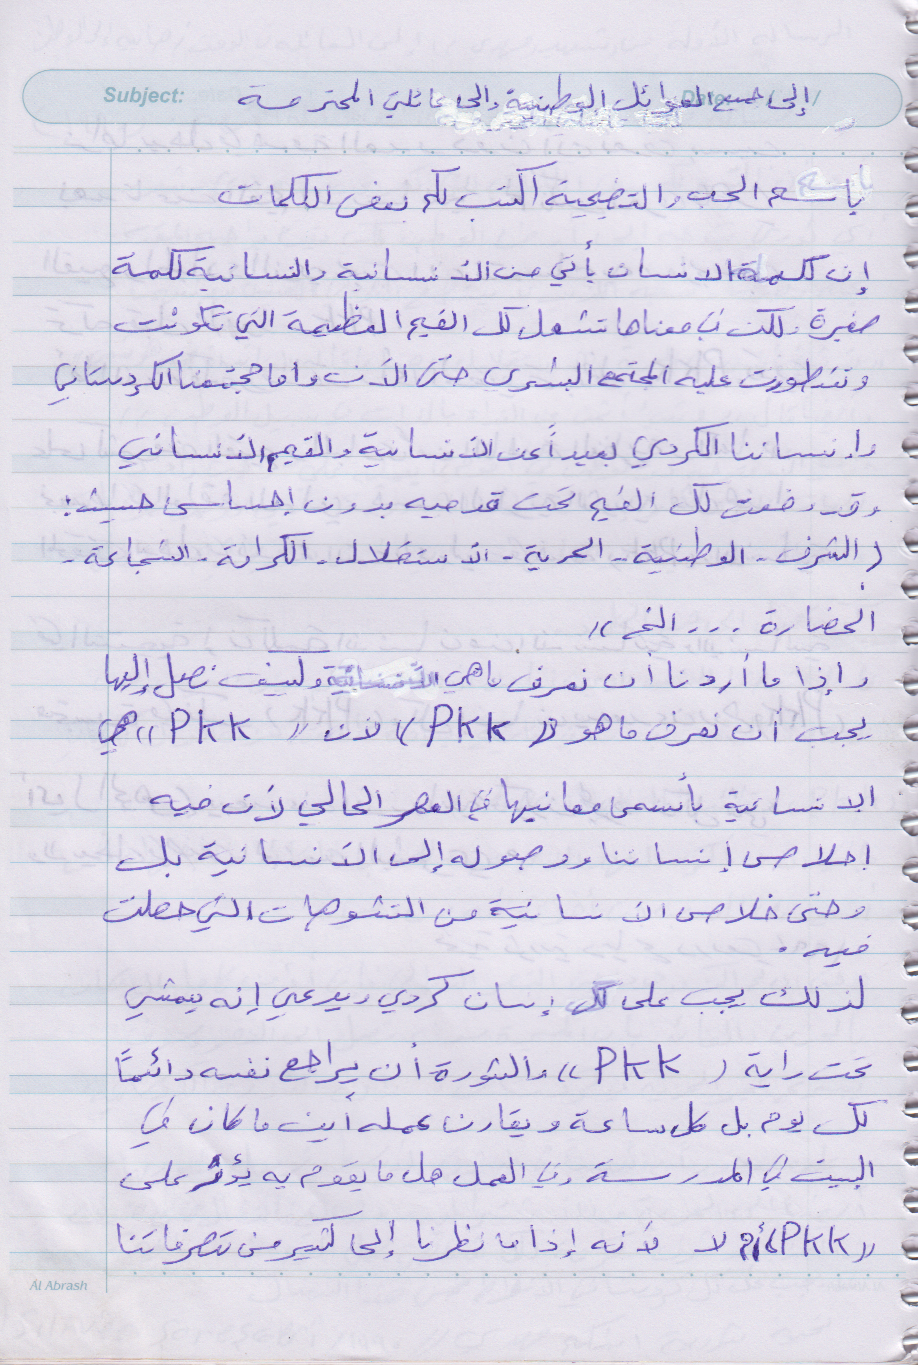 Subject:
Date: / /
إلى جميع العوائل الوطنية والى عائلتي المحترمة
بأسم الحب والتضحية اكتب لكم بعض الكلمات
إن كلمة الانسان يأتي من الانسانية والنسانية كلمة
صغيرة ولكن في معناها تشمل كل القيم العظيمة التي تكونت
وتتطورت عليه المجتمع البشري حتى الأن واما مجتمعنا الكردستاني
وانساننا الكردي بعيداً عن الانسانية والقيم الانساني
وقد وضعت كل القيم تحت قدميه بدون إحساس حيث:
( الشرف - الوطنية - الحرية - الاستقلال - الكرامة - الشجاعة -
الحضارة . . . الخ »
وإذا ما أردنا أن نعرف ماهي الانسانية وكيف نصل إليها
يجب أن نعرف ما هو « Pkk » لأن « Pkk » هي
الانسانية بأسمى معانيها في العصر الحالي لأن فيه
اخلاص إنساننا ووصوله إلى الانسانية بل
وحتى خلاص الانسانية من التشوهات التي حصلت
فيه .
لذلك يجب على كل إنسان كردي ويدعي إنه يمشي
تحت راية ( Pkk » والثورة أن يراجع نفسه دائماً
كل يوم بل كل ساعة ويقارن عمله أين ما كان في
البيت في المدرسة وفي العمل هل ما يقوم به يؤثر على
« Pkk » أم لا لأنه إذا ما نظرنا إلى كثير من تصرفاتنا
Al Abrash